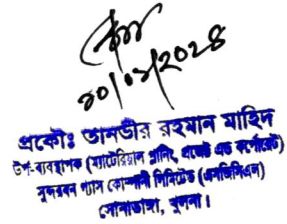 ২০/০১/২০২৪
প্রকৌঃ তানভীর রহমান মাহিদ
উপ-ব্যবস্থাপক (ম্যাটেরিয়াল প্লানিং, বাজেট এন্ড কর্পোরেট)
সুন্দরবন গ্যাস কোম্পানী লিমিটেড (এসজিসিএল)
সোনাডাঙ্গা, খুলনা।